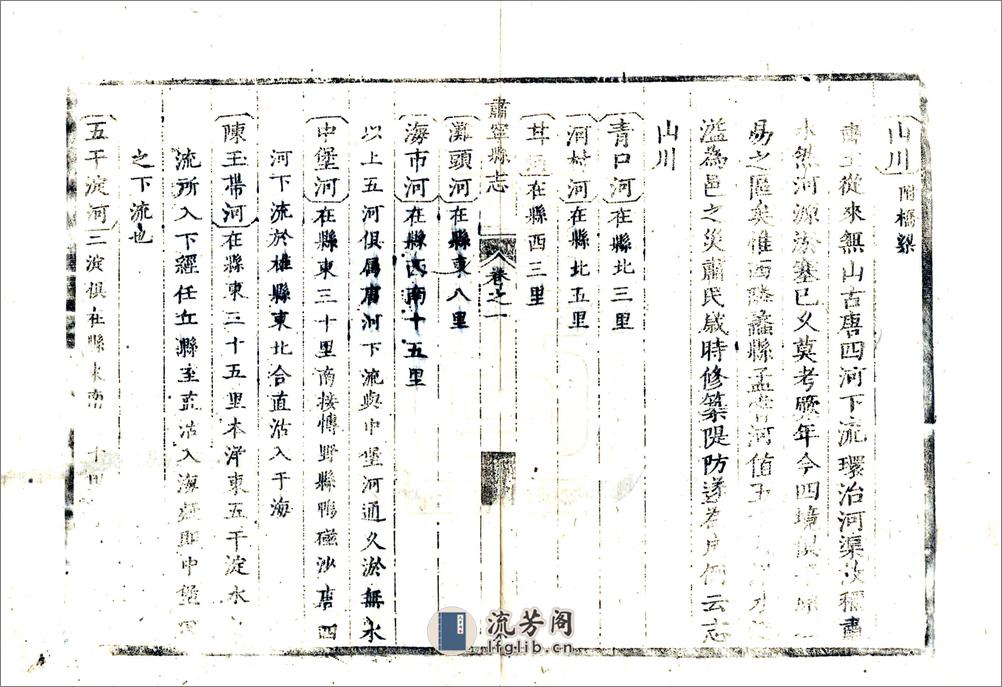 山川 附橋梁
從來無山古唐四河下流環治河渠故稱肅
水然河源淤塞已久莫考厥年今四境俱
易之區矣惟西隣蠡縣孟嘗河值
溢為邑之災肅民歲時修築隄防遂為成例云志
山川
青口河在縣北三里
河村河在縣北五里
在縣西三里
肅寧縣志 卷之一
灘頭河在縣東八里
海市河在縣西南十五里
以上五河俱屬唐河下流與中堡河通久淤無水
中堡河在縣東三十里南接博野縣鴨磁沙唐四
河下流於雄縣東北合直沽入于海
陳王帶河在縣東三十五里本滹東五干淀水
流所入下經任丘縣至直沽入海即中堡
之下流也
五干淀河三淀俱在縣東南 十里
流芳阁
lfglib.cn